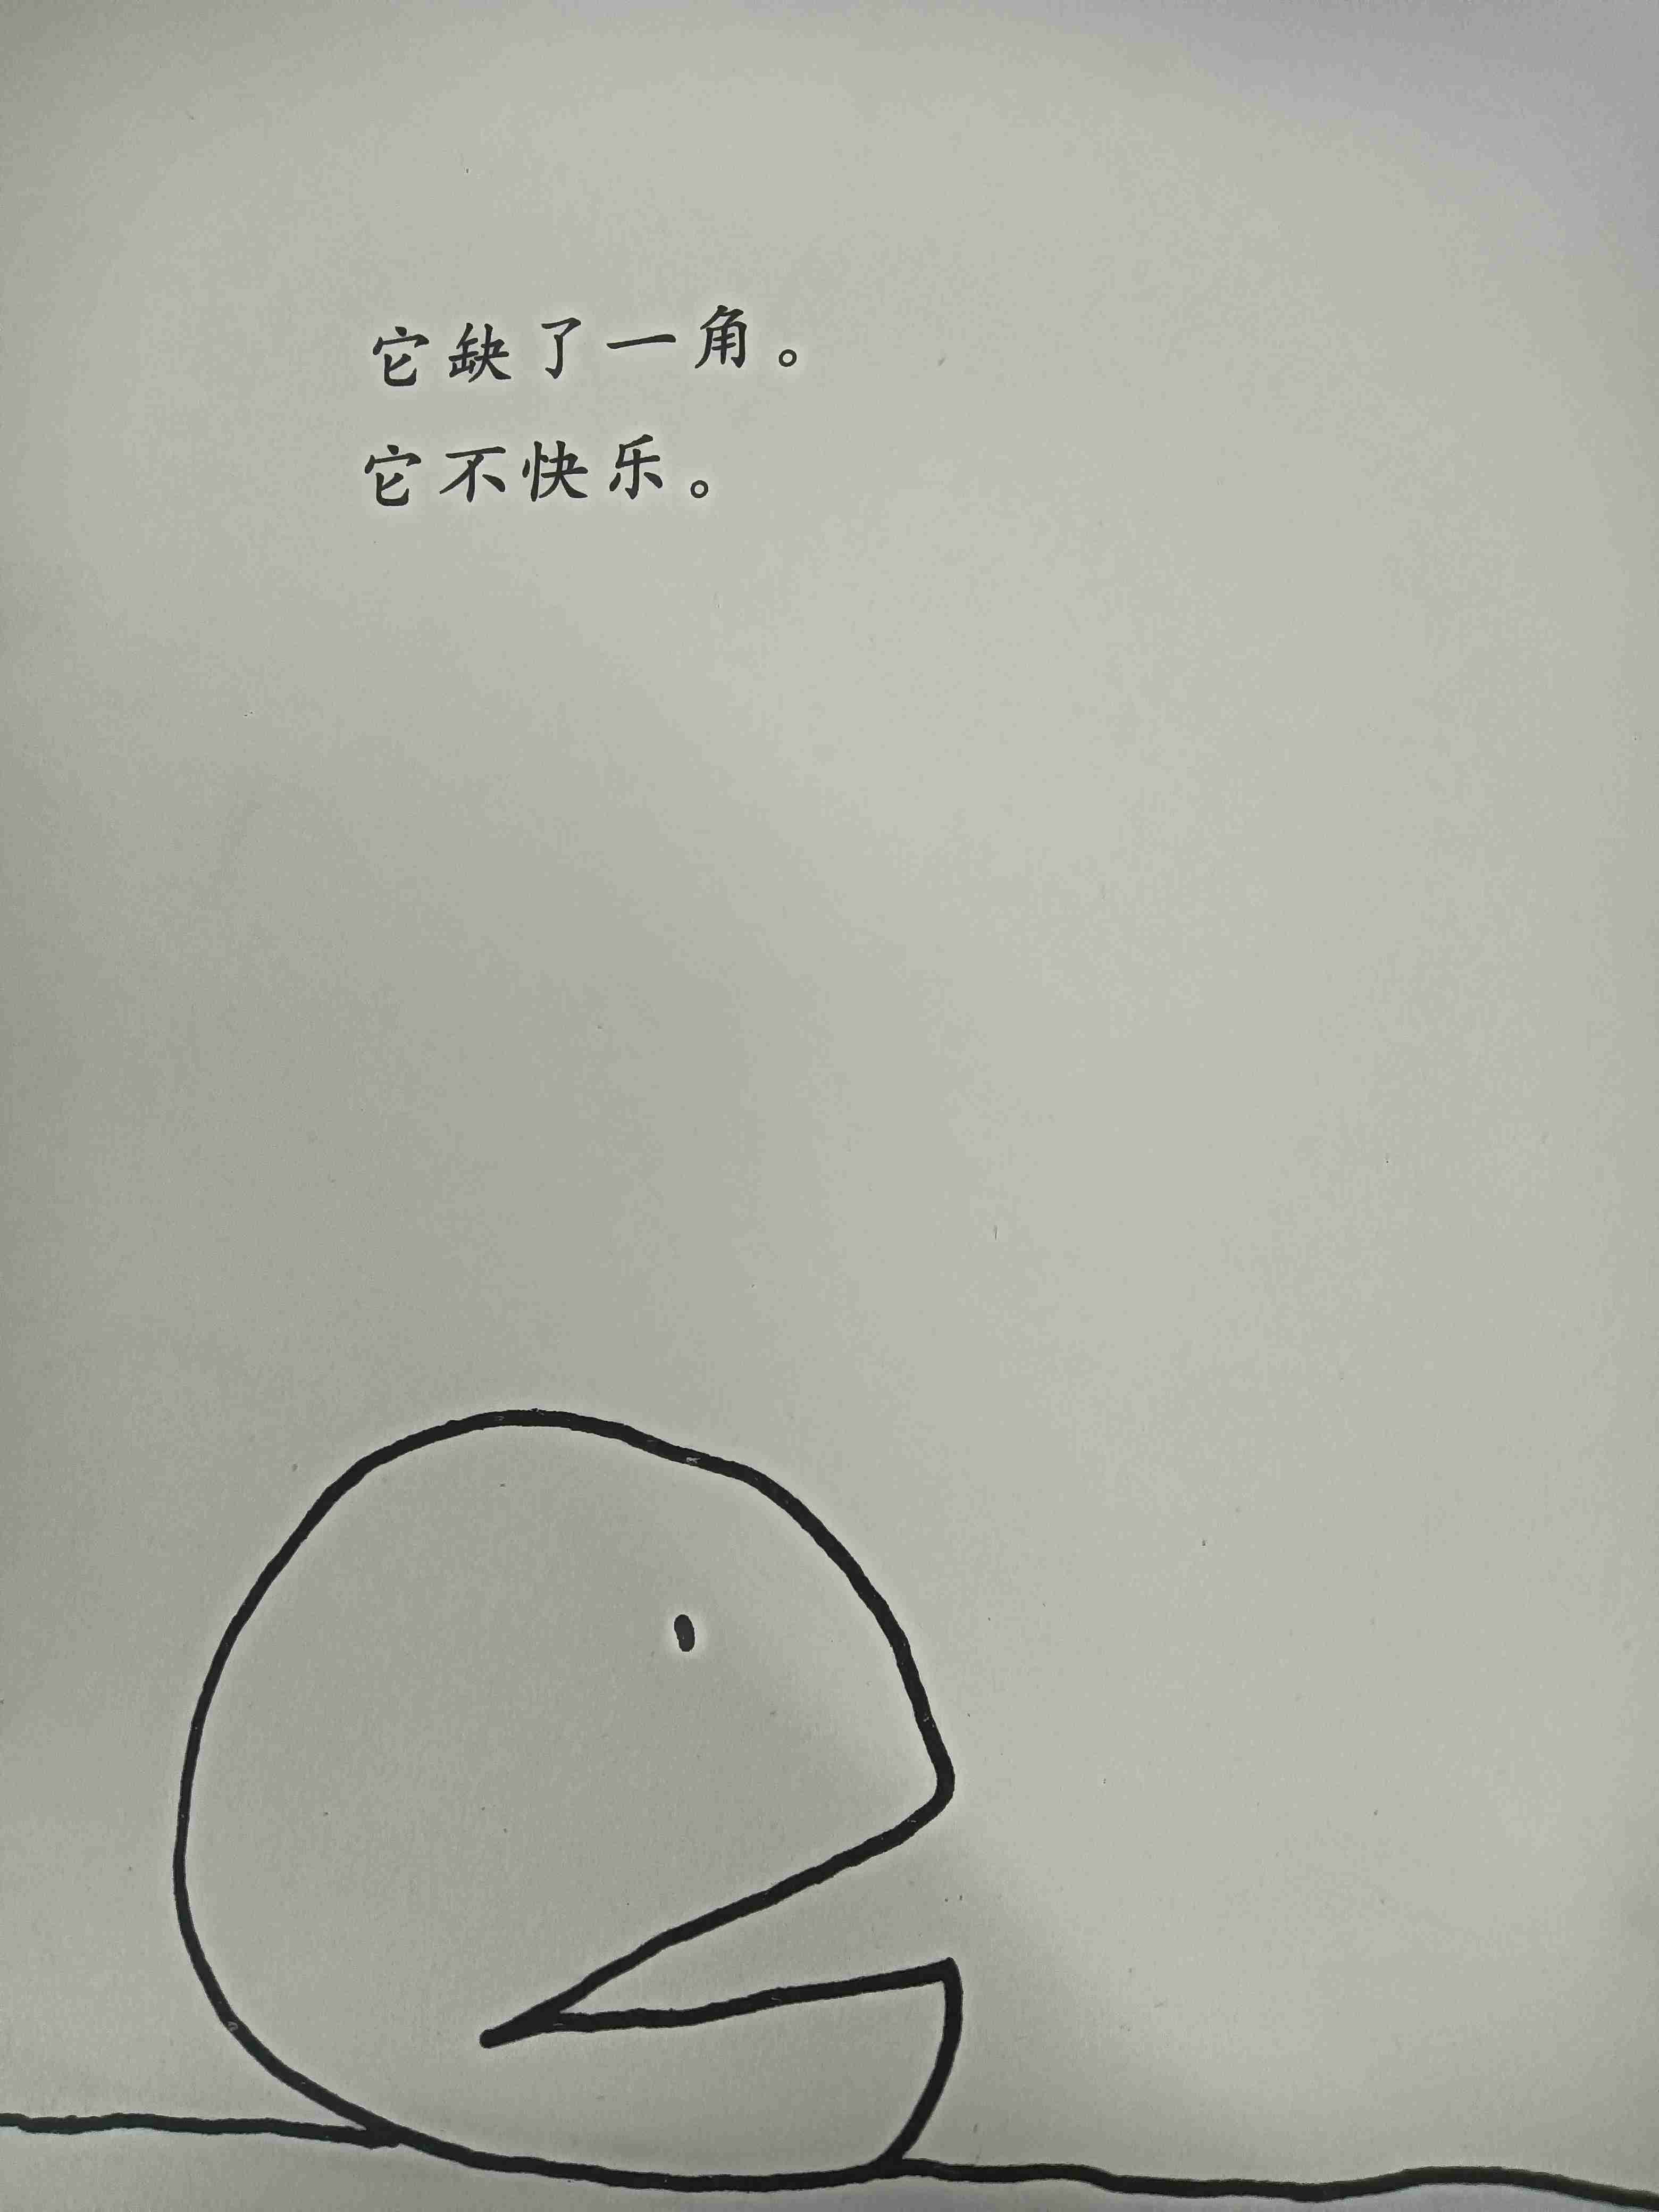 它缺了一角。
它不快乐。